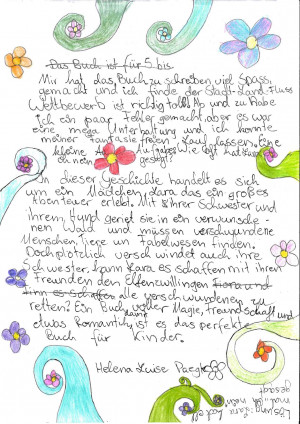 Das Buch ist für 5 bis
Mir hat das Buch zu schreiben viel Spass
gemacht und ich finde der Stadt-Land-Fluss
Wettbewerb ist richtig toll! Ab und zu habe
ich ein paar Fehler gemacht, aber es war
eine mega Unterhaltung und ich konnte
meiner Fantasie freien Lauf lassen. Eine
kleine
In dieser Geschichte handelt es sich
um ein Mädchen, Lara, das ein großes
Abenteuer erlebt. Mit ihrer Schwester und
ihrem Hund gerät sie in ein verwunsche-
nen Wald und müssen verschwundene
Menschen, Tiere und Fabelwesen finden.
Doch plötzlich verschwindet auch ihre
Schwester, kann Lara es schaffen mit ihren
Freunden den Elfenzwillingen Fiora und
Finn es schaffen alle verschwundenen zu
retten? Ein Buch voller Magie, Freundschaft und
etwas Romantik, ist es das perfekte
Buch für Kinder.
Helena Luise
Lösung:
gesagt